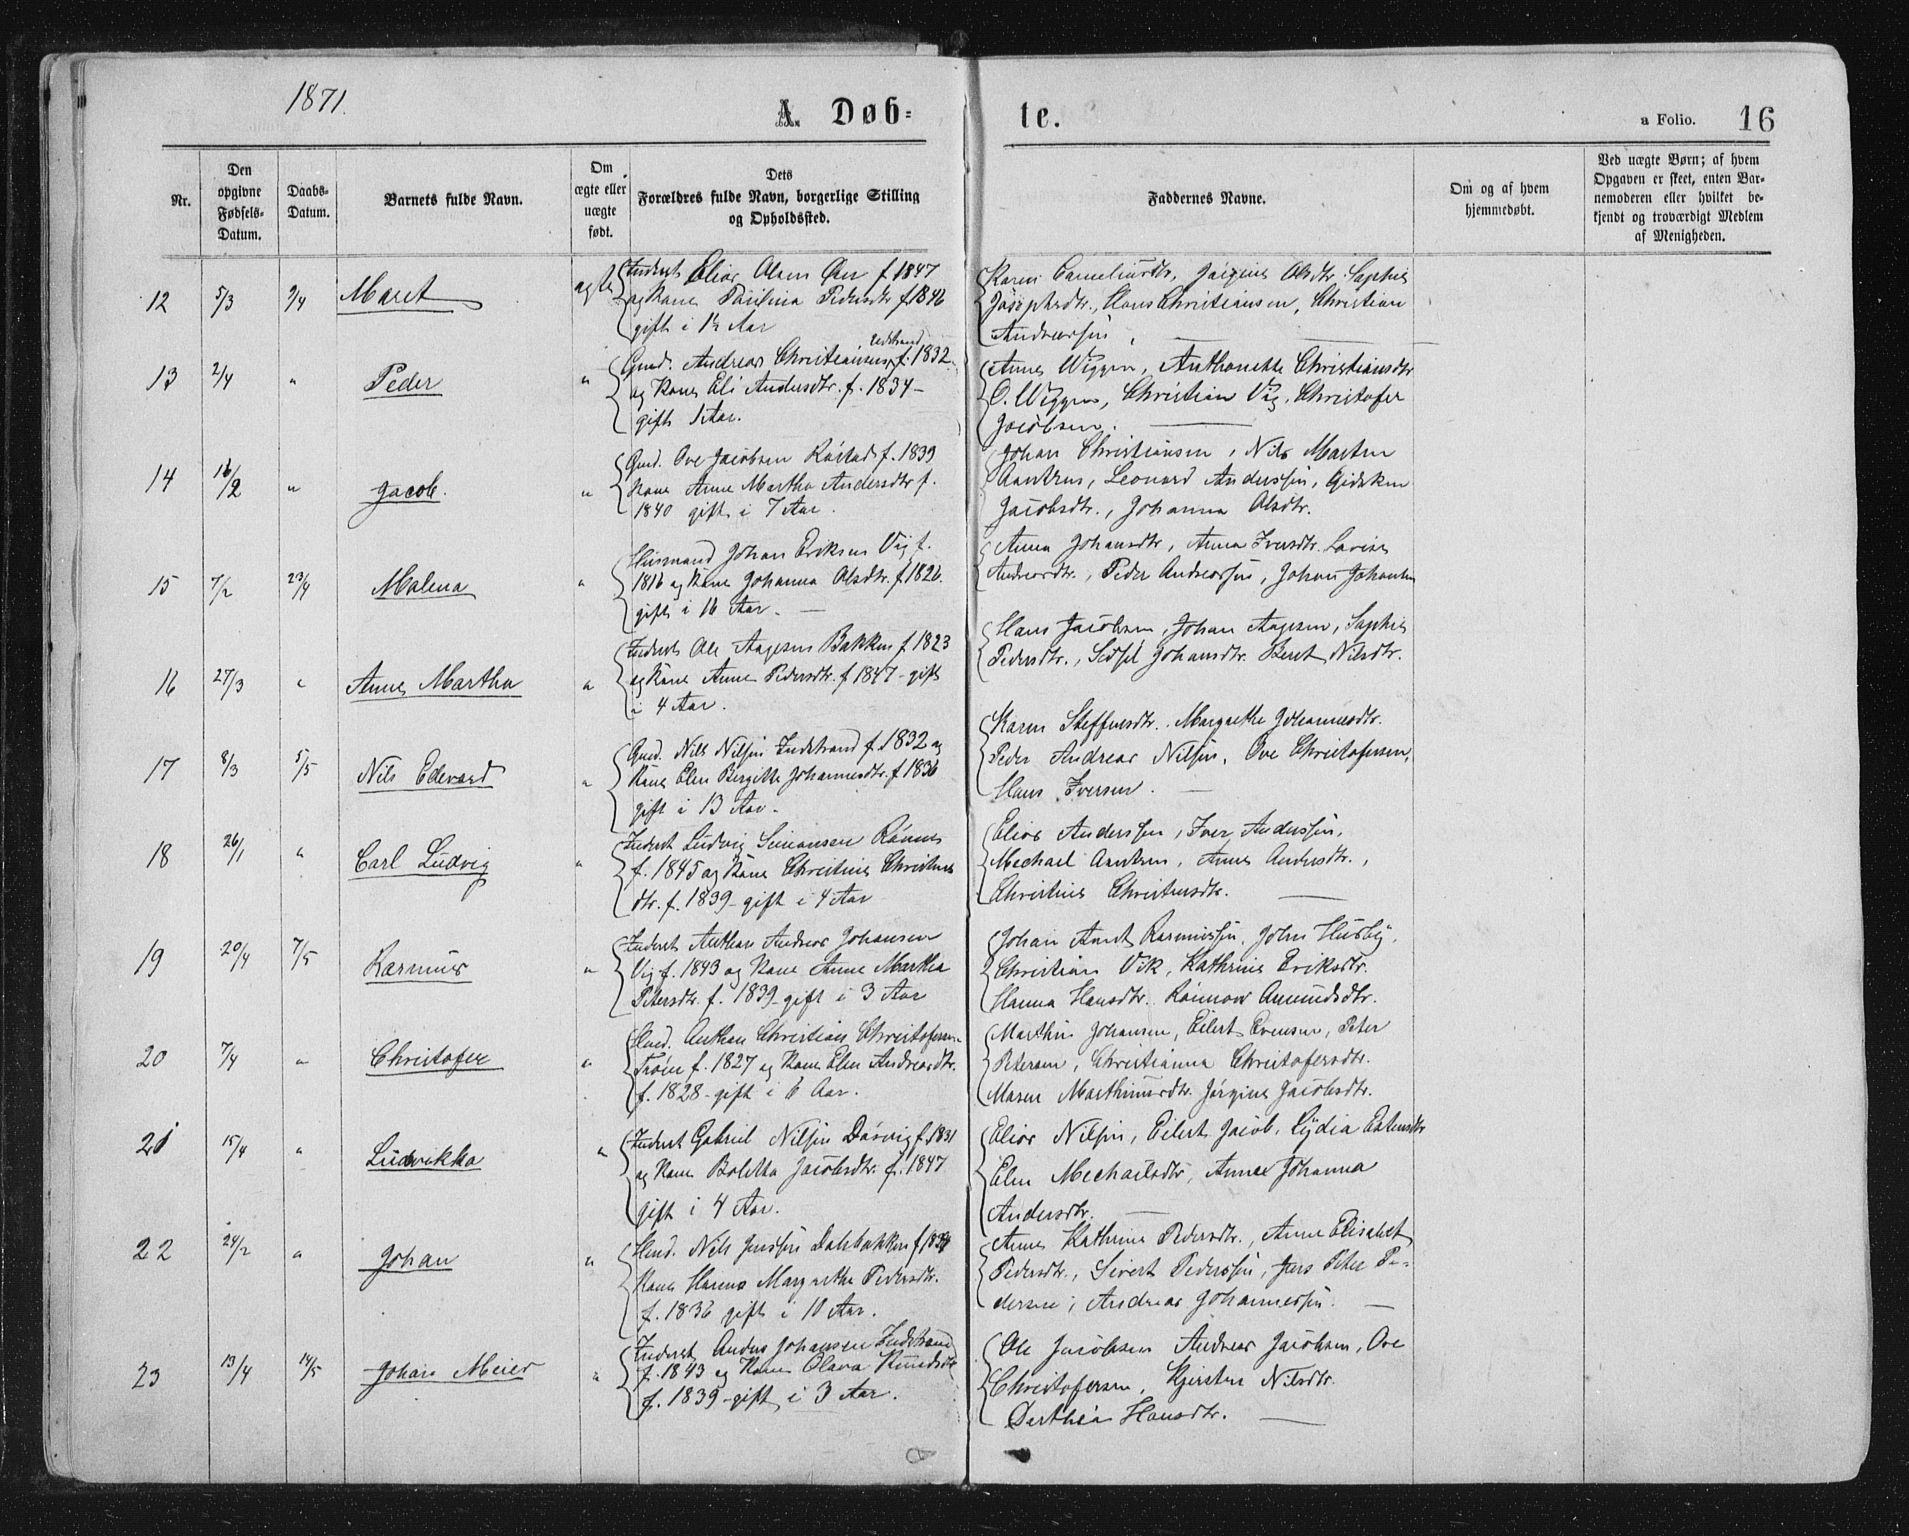 1871.
A. Døb= te.
a Folio. 16
Nr.
Den opgivne Fødsels-Datum.
Daabs-Datum.
Barnets fulde Navn.
Om ægte eller uægte født.
Dets Forældres fulde Navn, borgerlige Stilling og Opholdssted.
Faddernes Navne.
Om og af hvem hjemmedøbt.
Ved uægte Børn; af hvem Opgaven er skeet, enten Barnemoderen eller hvilket bekjendt og troværdigt Medlem af Menigheden.
12 5/3 9/4 Maret ægte
Inderst Elias Olsen f 1847
og Kone Paulina Pedersdtr f 1846
gift i 1½ Aar
Karen Corneliusdtr, Jørgine Olsdtr. Sophie
Josephsdtr., Hans Christiansen, Christian
Anderssen,
13 2/4 " Peder "
Gmd. Andreas Christiansen, f. 1832.
og Kone Eli Andersdtr. f. 1834 -
gift 1 Aar.
Anne Wiggen, Anthonette Christiansdtr
O. Wiggen, Christian Vig, Christofer
Jacobsen.
14 16/2 " Jacob. "
Gmd. Ove Jacobsen f. 1839
Kone Anne Martha Andersdtr f.
1840 gift i 7 Aar.
Johan Christiansen, Nils Martin
Leonard Anderssen, Gidsken
Jacobsdtr., Johanna Olsdtr.
15 7/2 23/4 Malena "
Husmand Johan Eriksen Vig f.
1816 og Kone Johanna Olsdtr. f 1826.
gift i 16 Aar. -
Anna Johansdtr, Anna Iversdtr. Lovise
Andreasdtr., Peder Andreassen, Johan Johansen
16 27/3 " Anne Martha "
Inderst Ole Aagesen Bakken f 1823
og Kone Anne Pedersdtr. f 1847 - gift
i 4 Aar.
Hans Jacobsen, Johan Aagesen, Sophie
Pedersdtr., Sidsel Johansdtr. Beret Nilsdtr.
17 8/3 5/5 Nils Edevard "
Gmd. Nils Nilsen Indstrand f. 1832 og
Kone Elen Bergitte Johannesdtr. f 1836
gift i 13 Aar.
Karen Steffensdtr. Margrethe Johannesdtr.
Peder Andreas Nilsen, Ove Christofersen,
Hans Iversen.
18 26/1 " Carl Ludvig "
Inderst Ludvig Simonsen
f. 1845 og Kone Christine Christens
dtr. f. 1839 - gift i 4 Aar
Elias Anderssen, Iver Anderssen,
Mechael Anne Andersdtr.,
Christine Christensdtr.
19 20/4 7/5 Rasmus "
Inderst Anthon Andreas Johansen
Vig f. 1843 og Kone Anne Martha
Petersdtr. f. 1839 - gift i 3 Aar
Johan Arnt Rasmussen, John Husby,
Christian Vik, Kathrine Eriksdtr.
Hanna Hansdtr. Rønnow Amundsdtr.
20 7/4 " Christofer "
Hmd. Anthon Christian Christofersen
f. 1827 og Kone Elen Andreasdtr.
f. 1828 - gift i 6 Aar.
Marthin Johansen, Eilert Evensen, Peter
Petersen, Christianna Christofersdtr.
Maren Marthinusdtr. Jørgine Jacobsdtr.
21 15/4 " Ludvikka "
Inderst Gabriel Nilsen Dasvig f. 1831
og Kone Boletta Jacobsdtr. f. 1847
gift i 4 Aar.
Elias Nilsen, Eilert Jacob. Lydia Estensdtr
Elen Mechaelsdtr, Anne Johanna
Andersdtr.
22 24/2 " Johan "
Hmd. Nils Jensen Dahlbakken f 1834
Kone Hanna Margrethe Pedersdtr.
f. 1836 gift i 10 Aar.
Anne Kathrine Pedersdtr., Anne Elisabet
Pedersdtr., Sivert Pederssen, Jens Peter Pe-
dersen, Andreas Johannessen.
23 13/4 14/5 Johan Meier "
Inderst Anders Johansen Indstrand
f. 1843 og Kone Olava Knudsdtr
f. 1839 - gift i 3 Aar.
Ole Jacobsen Andreas Jacobsen, Ove
Christofersen, Kjersten Nilsdtr.
Dorthea Hansdtr.